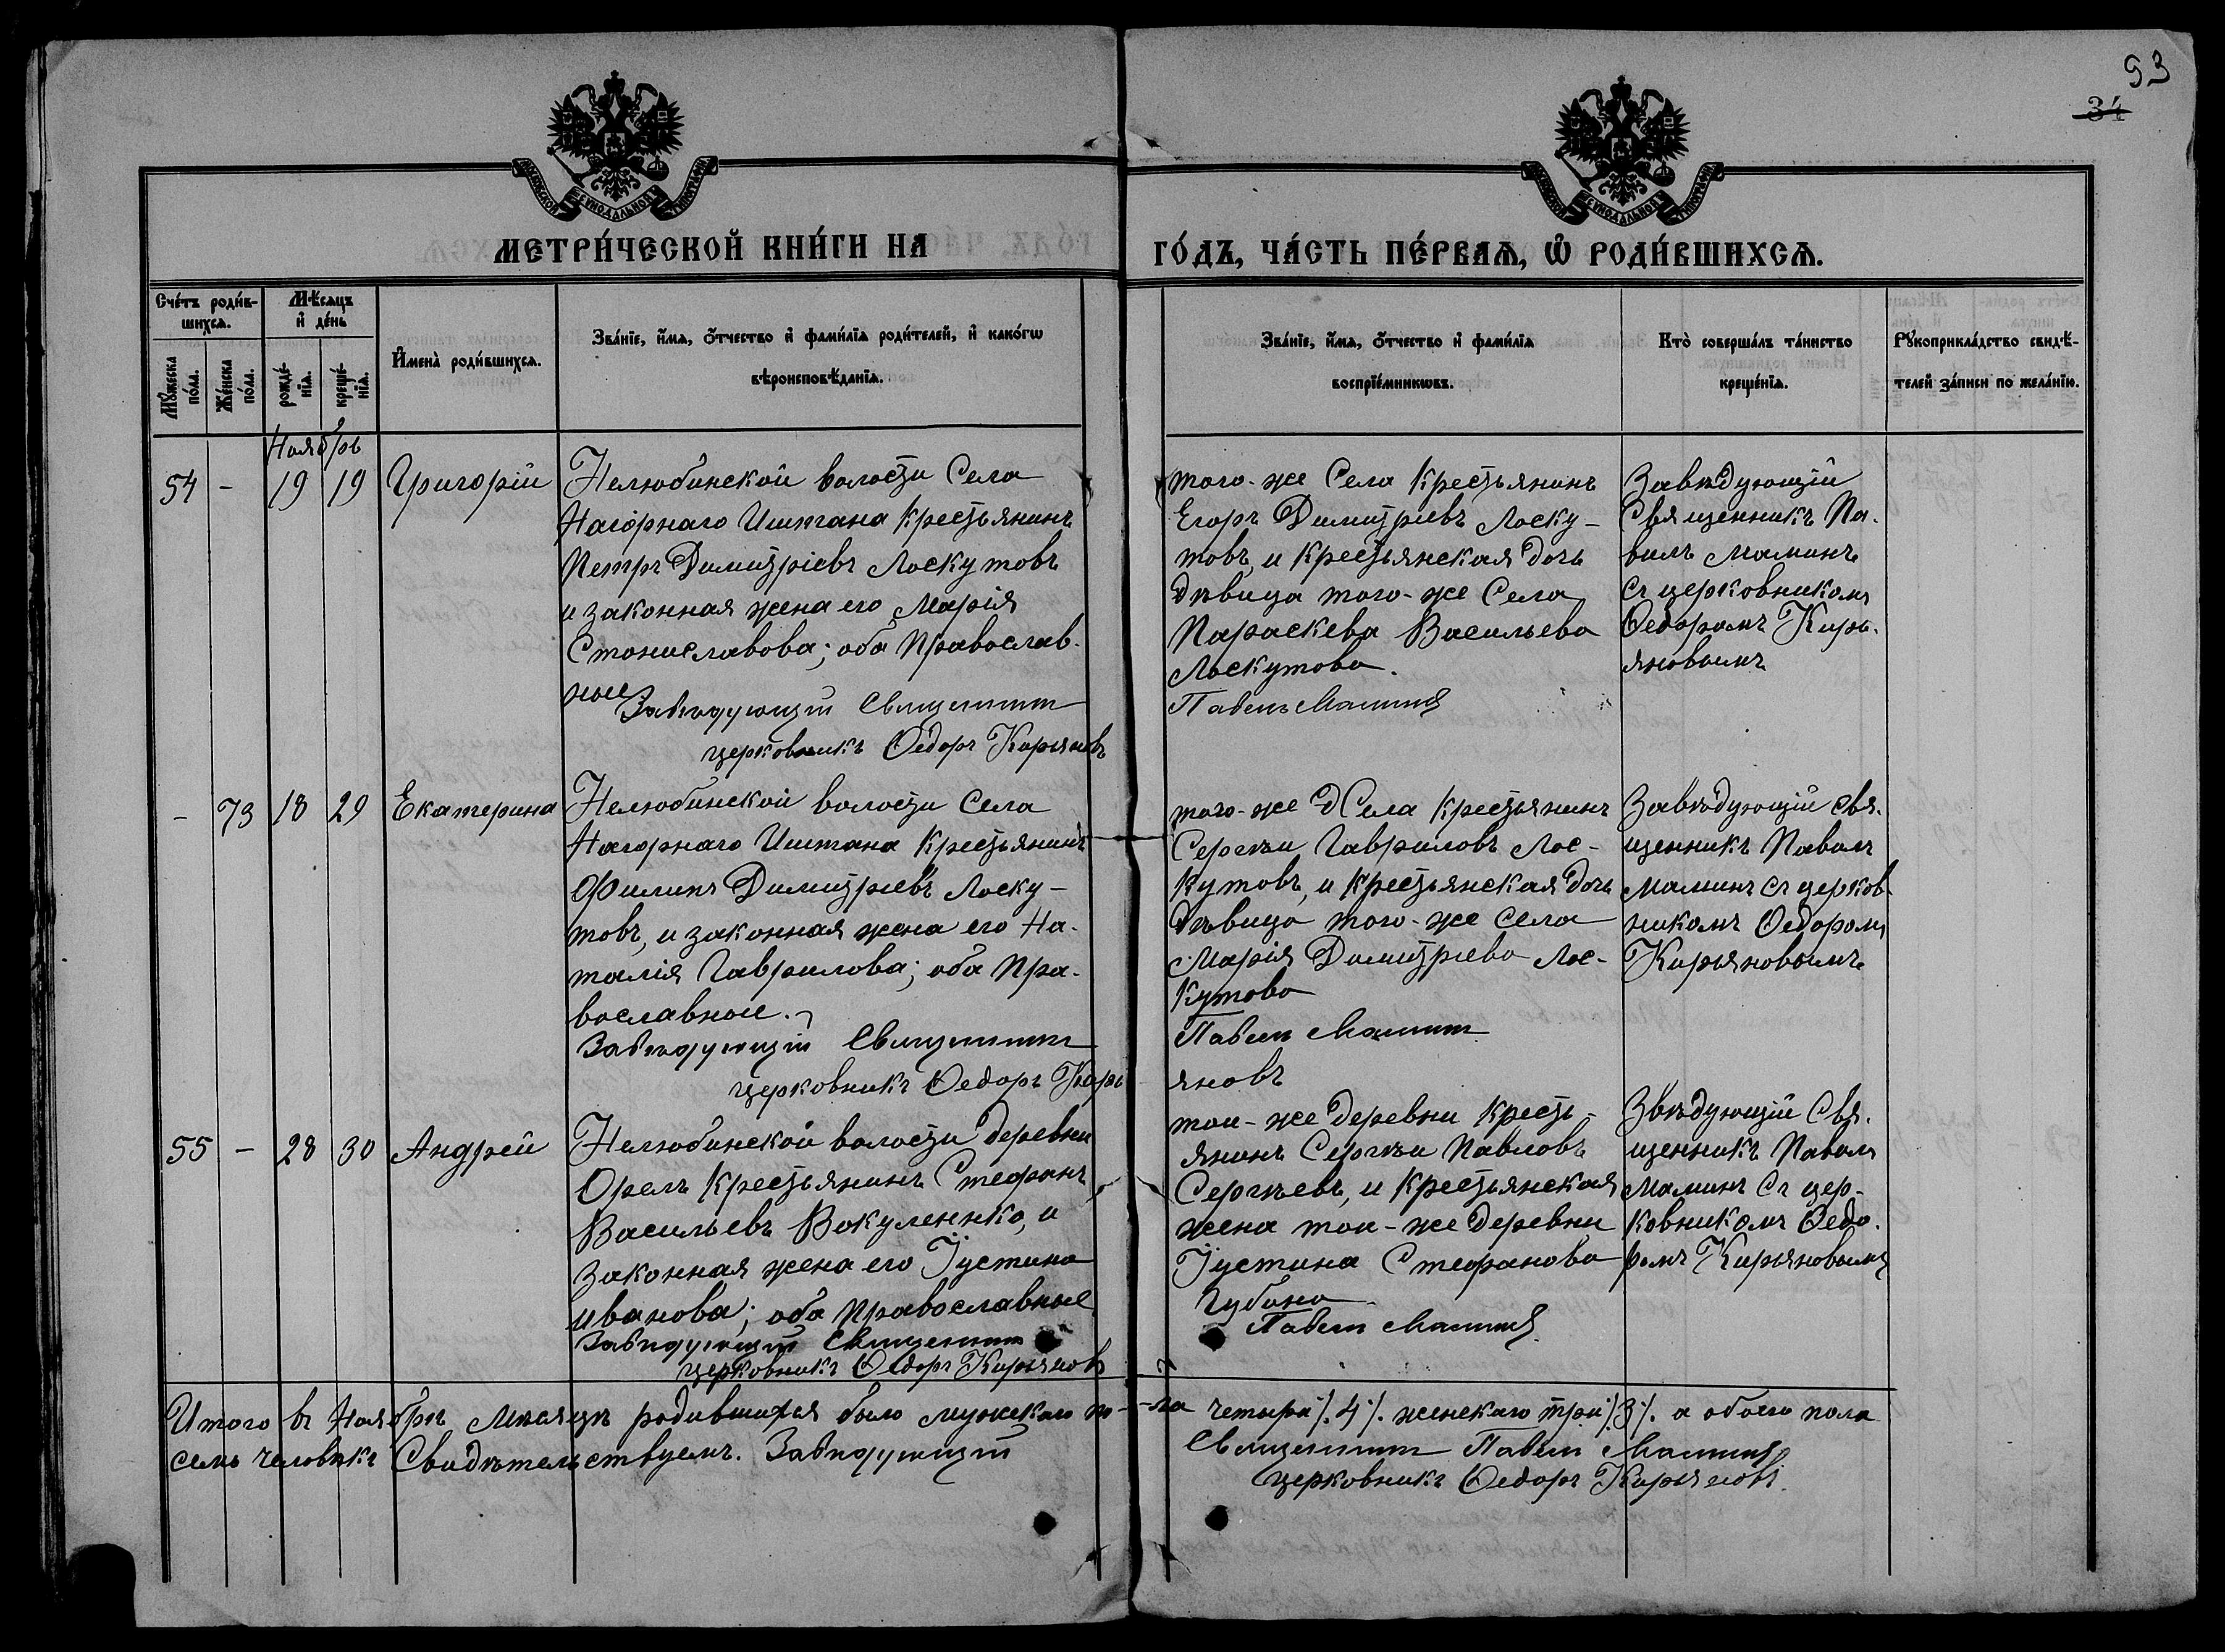 93
34
МОСКОВСКОЙ СѴНОДАЛЬНОЙ ТИПОГРАФІИ
МОСКОВСКОЙ СѴНОДАЛЬНОЙ ТИПОГРАФІИ
МЕТРИ́ЧЕСКОЙ КНИ́ГИ НА
ГО́ДЪ, ЧА́СТЬ ПЕ́РВАѦ, Ѡ҆ РОДИ́ВШИХСѦ.
Сче́тъ роди́в-
шихсѧ.
Мѣ́сѧцъ
и҆ де́нь
Мꙋ́жеска
по́ла.
Же́нска
по́ла.
рожде́-
нїѧ.
креще́-
нїѧ.
И҆мена̀ роди́вшихсѧ.
Зва́нїе, и҆́мѧ, ѻ҆́тчество и҆ фами́лїѧ роди́телей, и҆ како́гѡ
вѣроисповѣ́данїѧ.
Зва́нїе, и҆́мѧ, ѻ҆́тчество и҆ фами́лїѧ
воспрїе́мникѡвъ.
Кто̀ соверша́лъ та́инство
креще́нїѧ.
Рꙋкоприкла́дство свидѣ́-
телей за́писи по жела́нїю.
Ноябрь
54 - 19 19 Григорій
Нелюбинской волости Села
Нагорнаго Иштана Крестьянинъ
Петръ Димитріевъ Лоскутовъ
и законная жена его Марія
Станиславова; оба Православ-
ные
Завѣдующій Священникъ
церковникъ Ѳедоръ Кирьяновъ
того-же Села Крестьянинъ
Егоръ Димитріевъ Лоску-
товъ, и Крестьянская дочь
дѣвица того-же Села
Параскева Васильева
Лоскутова.
Павелъ Маминъ
Завѣдующій
Священникъ Па-
велъ Маминъ
съ церковникомъ
Ѳедоромъ Кирь-
яновымъ
- 73 18 29 Екатерина
Нелюбинской волости Села
Нагорнаго Иштана Крестьянинъ
Филипъ Димитріевъ Лоску-
товъ, и законная жена его На-
талія Гаврилова; оба Пра-
вославные.
Завѣдующій Священникъ
церковникъ Ѳедоръ Кирь
того-же Села Крестьянинъ
Сергѣй Гавриловъ Лос-
кутовъ, и Крестьянская дочь
дѣвица того-же Села
Марія Димитріева Лос-
кутова
Павелъ Маминъ
яновъ
Завѣдующій Свя-
щенникъ Павелъ
Маминъ съ церков-
никомъ Ѳедоромъ
Кирьяновымъ
55 - 28 30 Андрей
Нелюбинской волости деревни
Орелъ Крестьянинъ Стефанъ
Васильевъ Вакуленнко, и
законная жена его Іустина
Иванова; оба православные
Завѣдующій Священникъ
церковникъ Ѳедоръ Кирьяновъ
той-же деревни Кресть-
янинъ Сергѣй Павловъ
Сергѣевъ, и Крестьянская
жена той-же деревни
Іустина Стефанова
Губина
Павелъ Маминъ
Звѣдующій Свя-
щенникъ Павелъ
Маминъ Съ цер-
ковникомъ Ѳедо-
ромъ Кирьяновымъ
Итого въ Ноябрѣ Мѣсяцѣ родившихся было мужскаго по-
-ла четыри /.4/. женскаго три /.3/. а обоего пола
семь человѣкъ Свидѣтельствуемъ. Завѣдующій
Священникъ Павелъ Маминъ
церковникъ Ѳедоръ Кирьяновъ.